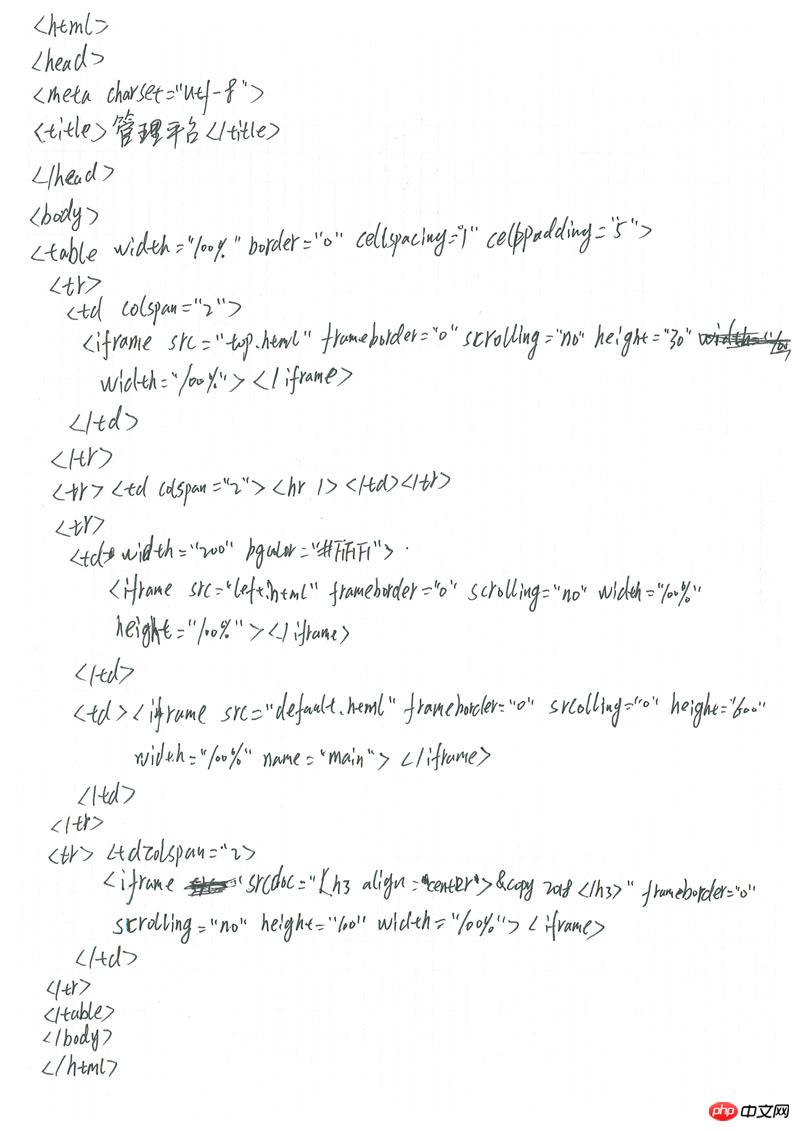 <html>
<head>
<meta charset="utf-8">
<title>管理平台</title>
</head>
<body>
<table width="100%" border="0" cellspacing="1" cellpadding="5">
<tr>
<td colspan="2">
<iframe src="top.html" frameborder="0" scrolling="no" height="30"
width="100%"></iframe>
</td>
</tr>
<tr><td colspan="2"><hr /></td></tr>
<tr>
<td width="200" bgcolor="#F1F1F1">
<iframe src="left.html" frameborder="0" scrolling="no" width="100%"
height="100%"></iframe>
</td>
<td><iframe src="default.html" frameborder="0" srcolling="0" height="600"
width="100%" name="main"></iframe>
</td>
</tr>
<tr> <td colspan="2>
<iframe srcdoc="<h3 align="center">&copy 2018 </h3>" frameborder="0"
scrolling="no" height="60" width="100%"> <iframe>
</td>
</tr>
</table>
</body>
</html>
php 中文网